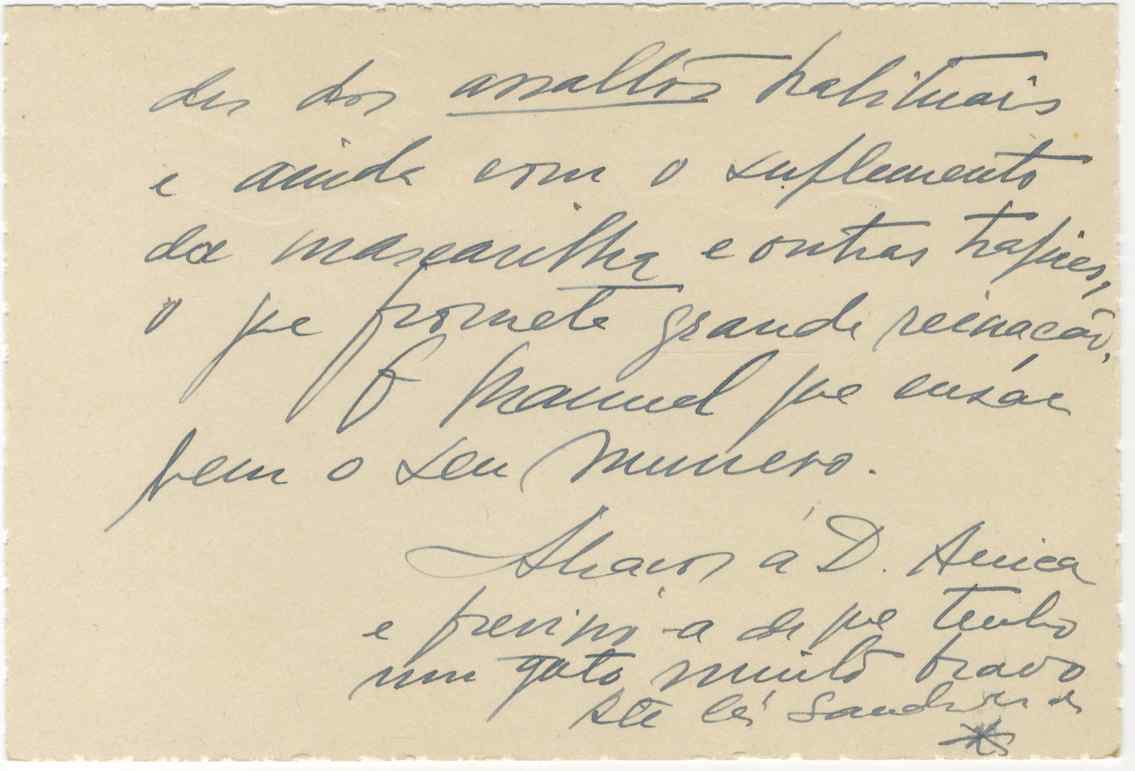 des dos assaltos habituais
e ainda com o suplemento
da mascarilha e outras
o que promete grande reinação,
E Manuel que ensáie
bem o seu numero.
Abraços á D. Anica
e previno-a de que tenho
um gato muito bravo
Até lá Saudades